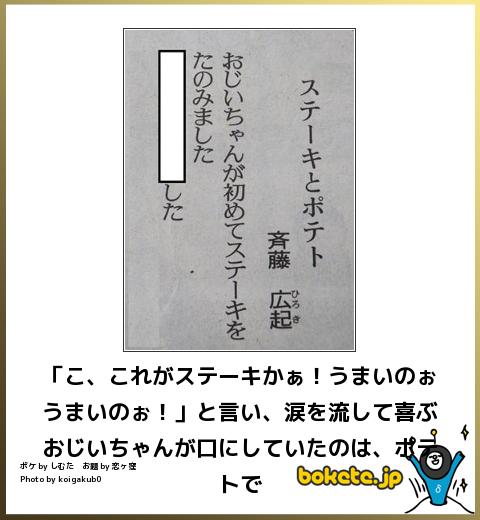 ステーキとポテト
斉藤 広起
ひろき
おじいちゃんが初めてステーキを
たのみました
した
「こ、これがステーキかぁ！うまいのぉ
うまいのぉ！」と言い、涙を流して喜ぶ
おじいちゃんが口にしていたのは、ポテ
トで
ボケ by しむた お題 by 恋ヶ窪
Photo by koigakub0
bokete.jp